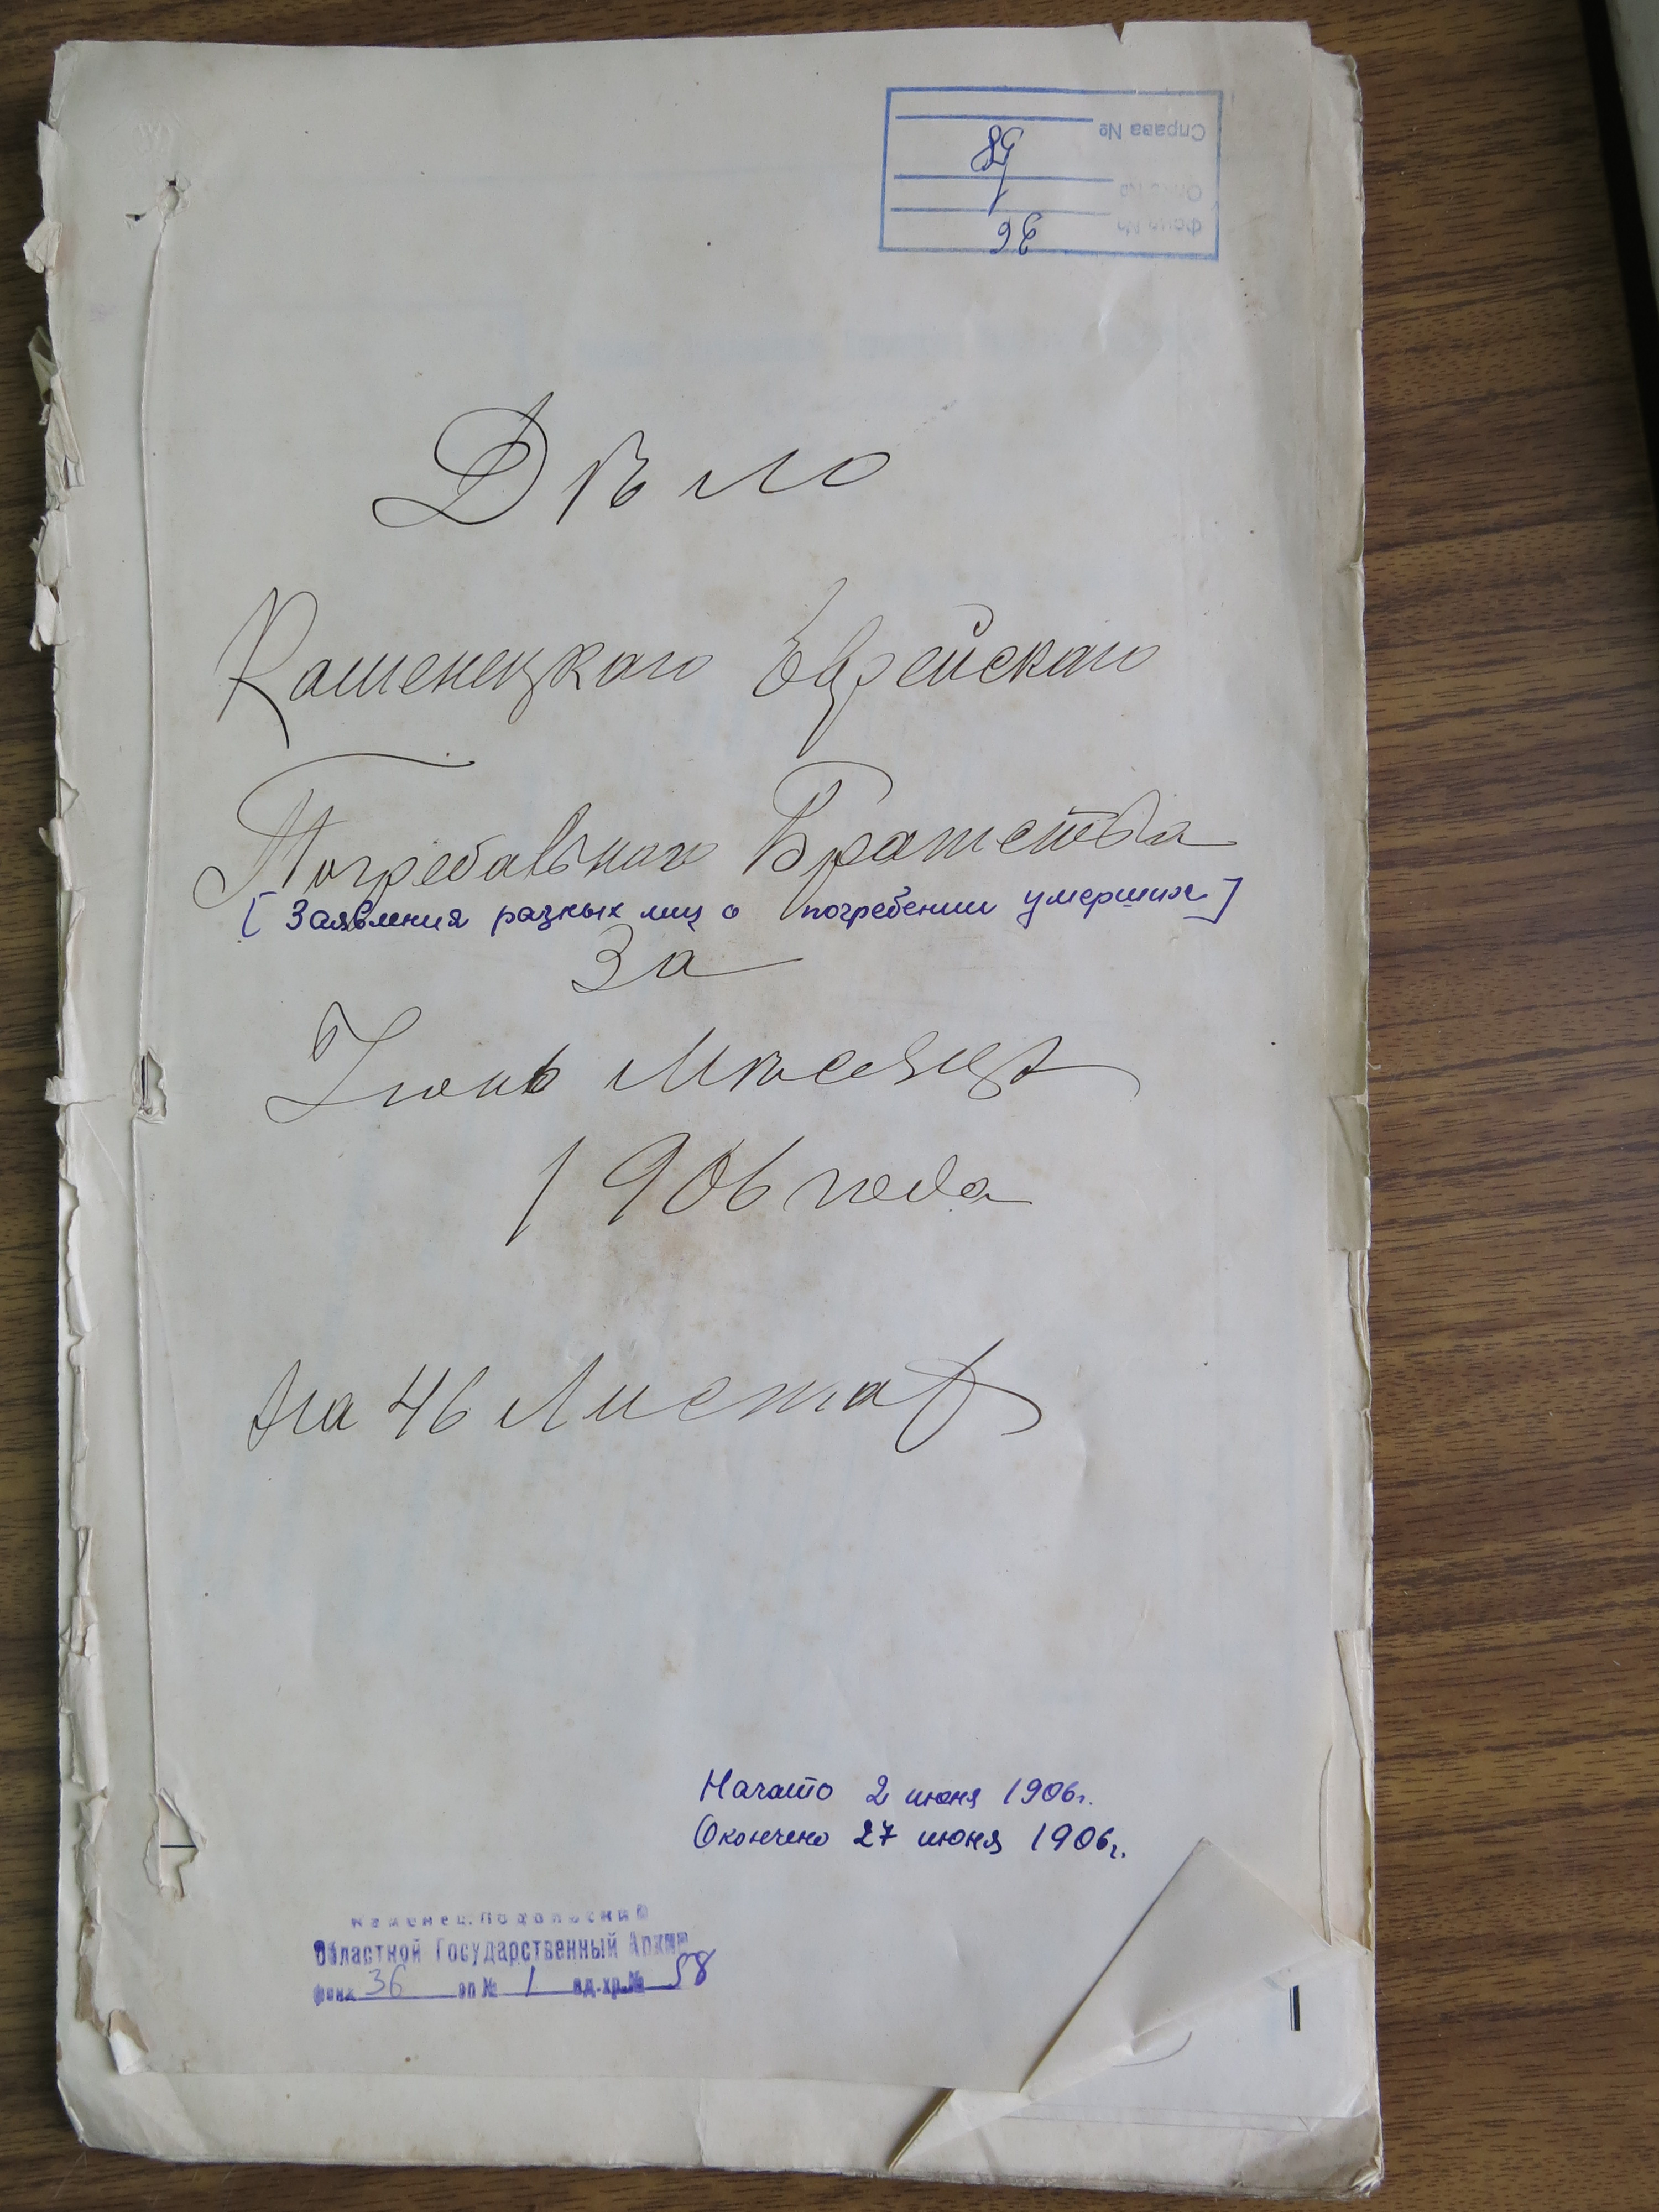 Справа № 58
Опис № 1
Фонд № 36
Дѣло
Каменецкаго Еврейскаго
Погребальнаго Братства
[Заявления разных лиц о погребении умерших]
За
Іюнь Мѣсяцъ
1906 года
на 46 Листах
Начато 2 июня 1906г.
Окончено 27 июня 1906г.
Каменец-Подольский
Областной Государственный Архив
фонд 36 оп № 1 ед.хр.№ 58